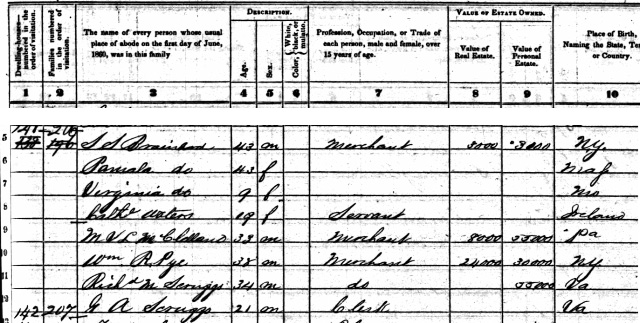 Dwelling-houses— numbered in the order of visitation.
Families numbered in the order of visitation.
The name of every person whose usual place of abode on the first day of June, 1860, was in this family
DESCRIPTION.
Age.
Sex.
Color, White, black, or mulatto.
Profession, Occupation, or Trade of each person, male and female, over 15 years of age.
VALUE OF ESTATE OWNED.
Value of Real Estate.
Value of Personal Estate.
Place of Birth, Naming the State,
or Country.
1 2 3 4 5 6 7 8 9 10
5 S S Brainard 43 m Merchant 3000 3000 NY.
6 Pamala do 43 f Mass
7 Virginia do 9 f Mo
8 Waters 19 f Servant Ireland
9 M V L McClelland 33 m Merchant 8000 55000 Pa
10 Wm R Pye 38 m Merchant 24,000 30000 NY
11 Richd M Scruggs 34 m do 55000 Va
12 142 207 A Scruggs 21 m Clerk Va